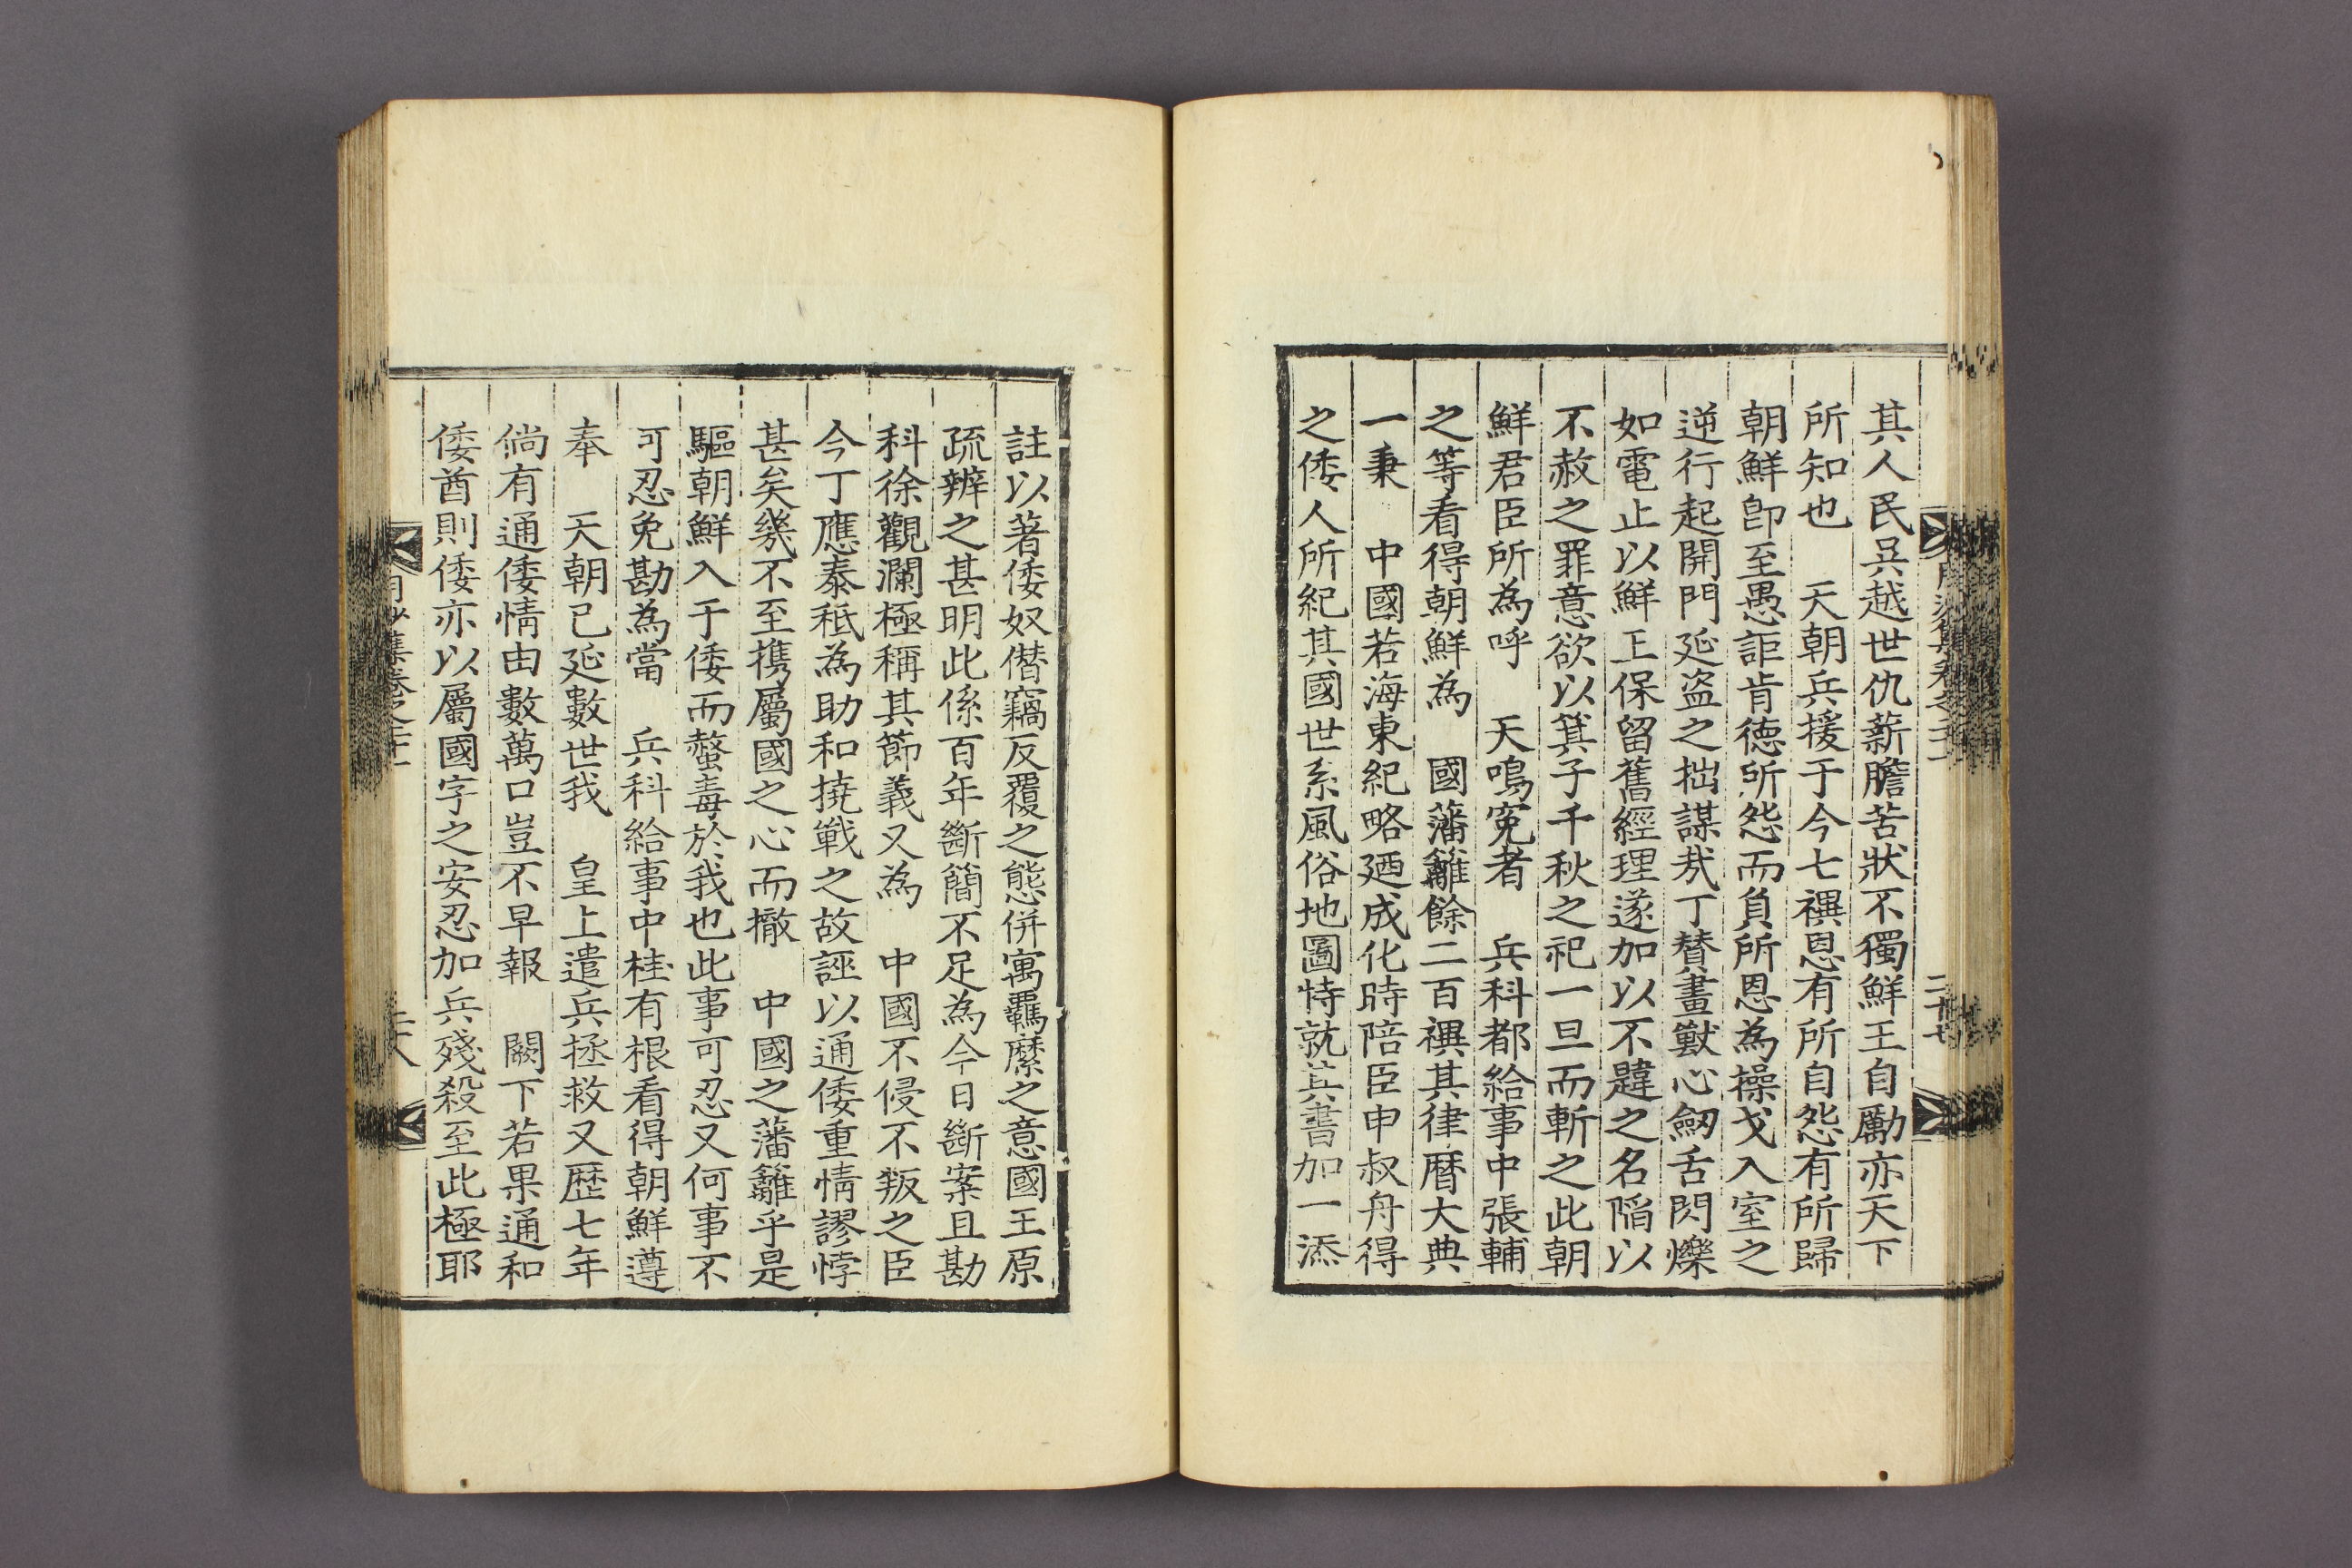 其人民吳越世仇薪膽苦狀不獨鮮王自勵亦天下
所知也　天朝兵援于今七禩恩有所自怨有所歸
朝鮮卽至愚詎肯德所怨而負所恩為操戈入室之
逆行起開門延盜之拙謀㢤丁賛畫獸心劒舌閃爍
如電止以鮮王保留舊經理遂加以不韙之名陷以
不赦之罪意欲以箕子千秋之祀一旦而斬之此朝
鮮君臣所為呼　天鳴寃者　兵科都給事中張輔
之等看得朝鮮為　國藩籬餘二百禩其律曆大典
一秉　中國若海東紀略廼成化時陪臣申叔舟得
之倭人所紀其國世系風俗地圖特就其書加一添
註以著倭奴僣竊反覆之態併寓羈縻之意國王原
疏辨之甚明此係百年斷簡不足為今日斷案且勘
科徐觀瀾極稱其節義又為　中國不侵不叛之臣
今丁應泰秪為助和撓戰之故誣以通倭重情謬悖
甚矣幾不至携屬國之心而撤　中國之藩籬乎是
驅朝鮮入于倭而螫毒於我也此事可忍又何事不
可忍免勘為當　兵科給事中桂有根看得朝鮮遵
奉　天朝已延數世我　皇上遣兵拯救又歷七年
倘有通倭情由數萬口豈不早報　闕下若果通和
倭酋則倭亦以屬國字之安忍加兵殘殺至此極耶